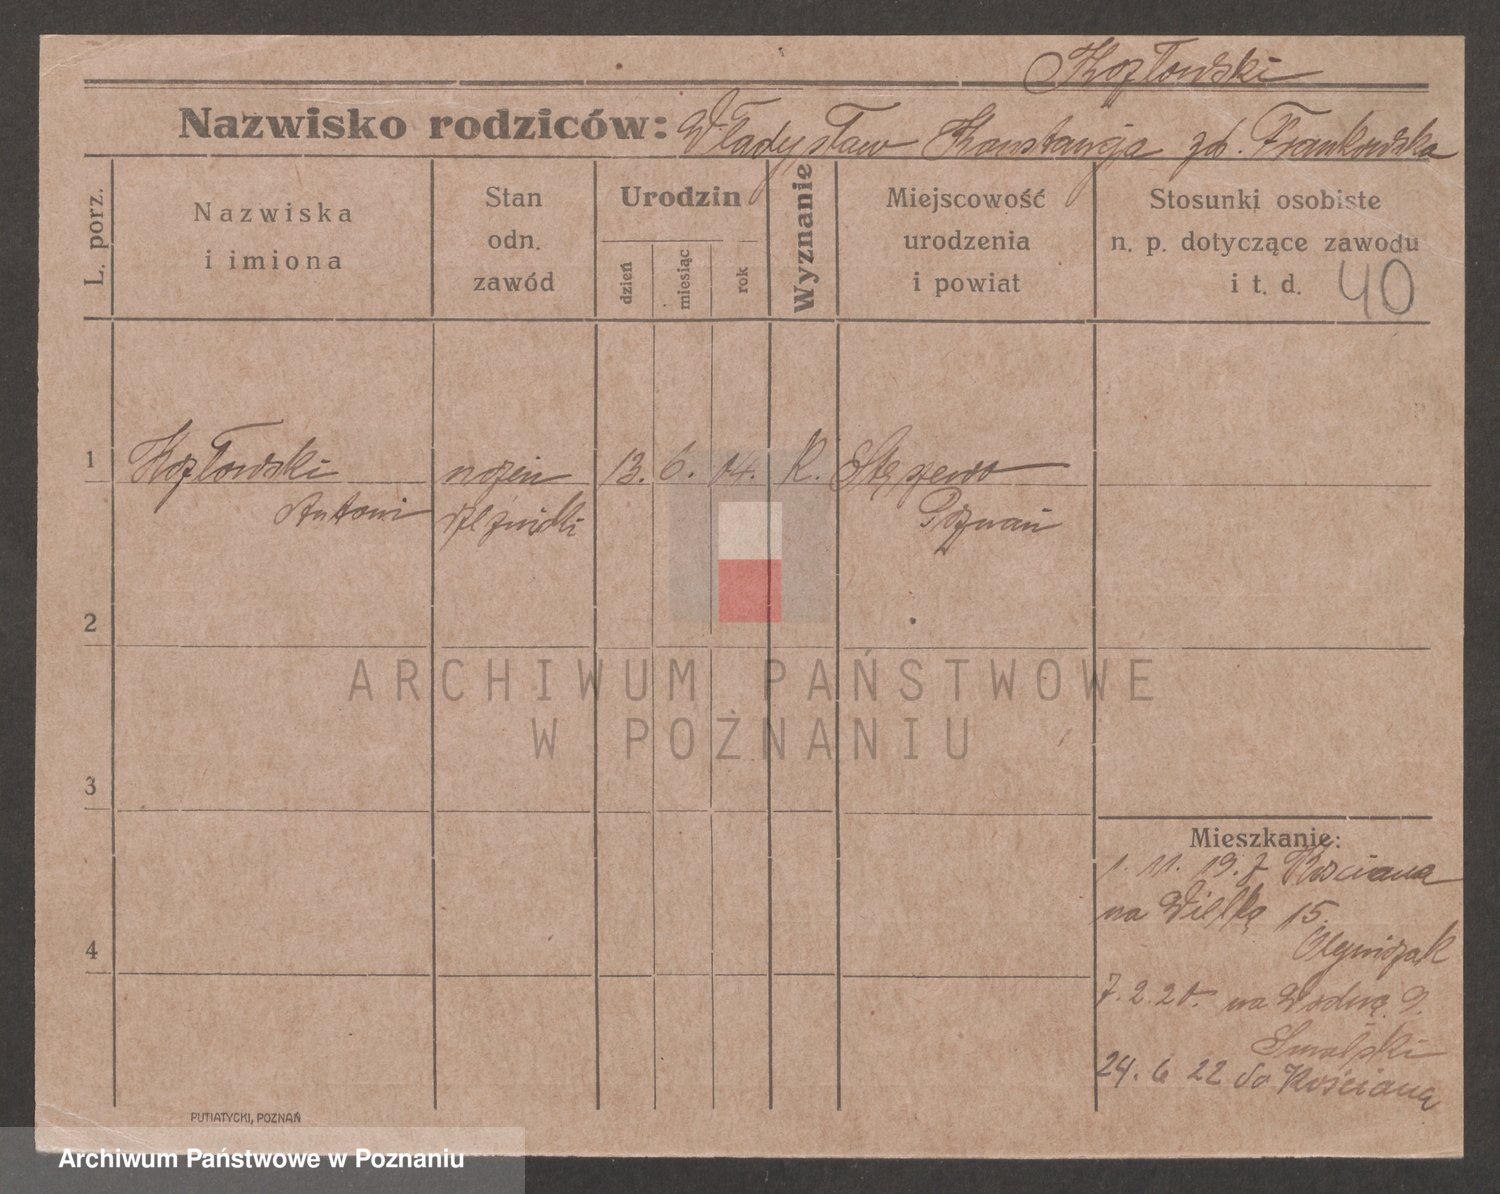 Kozłowski
Nazwisko rodziców: Władysław Konstancja zd. Frankowska
L. porz.
Nazwiska
i imiona
Stan
odn.
zawód
Urodzin
dzień
miesiąc
rok
Wyznanie
Miejscowość
urodzenia
i powiat
Stosunki osobiste
n. p. dotyczące zawodu
i t. d.
40
1
Kozłowski
Antoni
uczeń
13. 6. 04.
K.
Poznań
2
3
4
ARCHIWUM PAŃSTWOWE
W POZNANIU
Mieszkanie:
1. 11. 19. z Kościana
na Wielką 15.
7. 2. 20. na Wodną 9.
24. 6 22 do Kościana
PUTIATYCKI, POZNAŃ
Archiwum Państwowe w Poznaniu